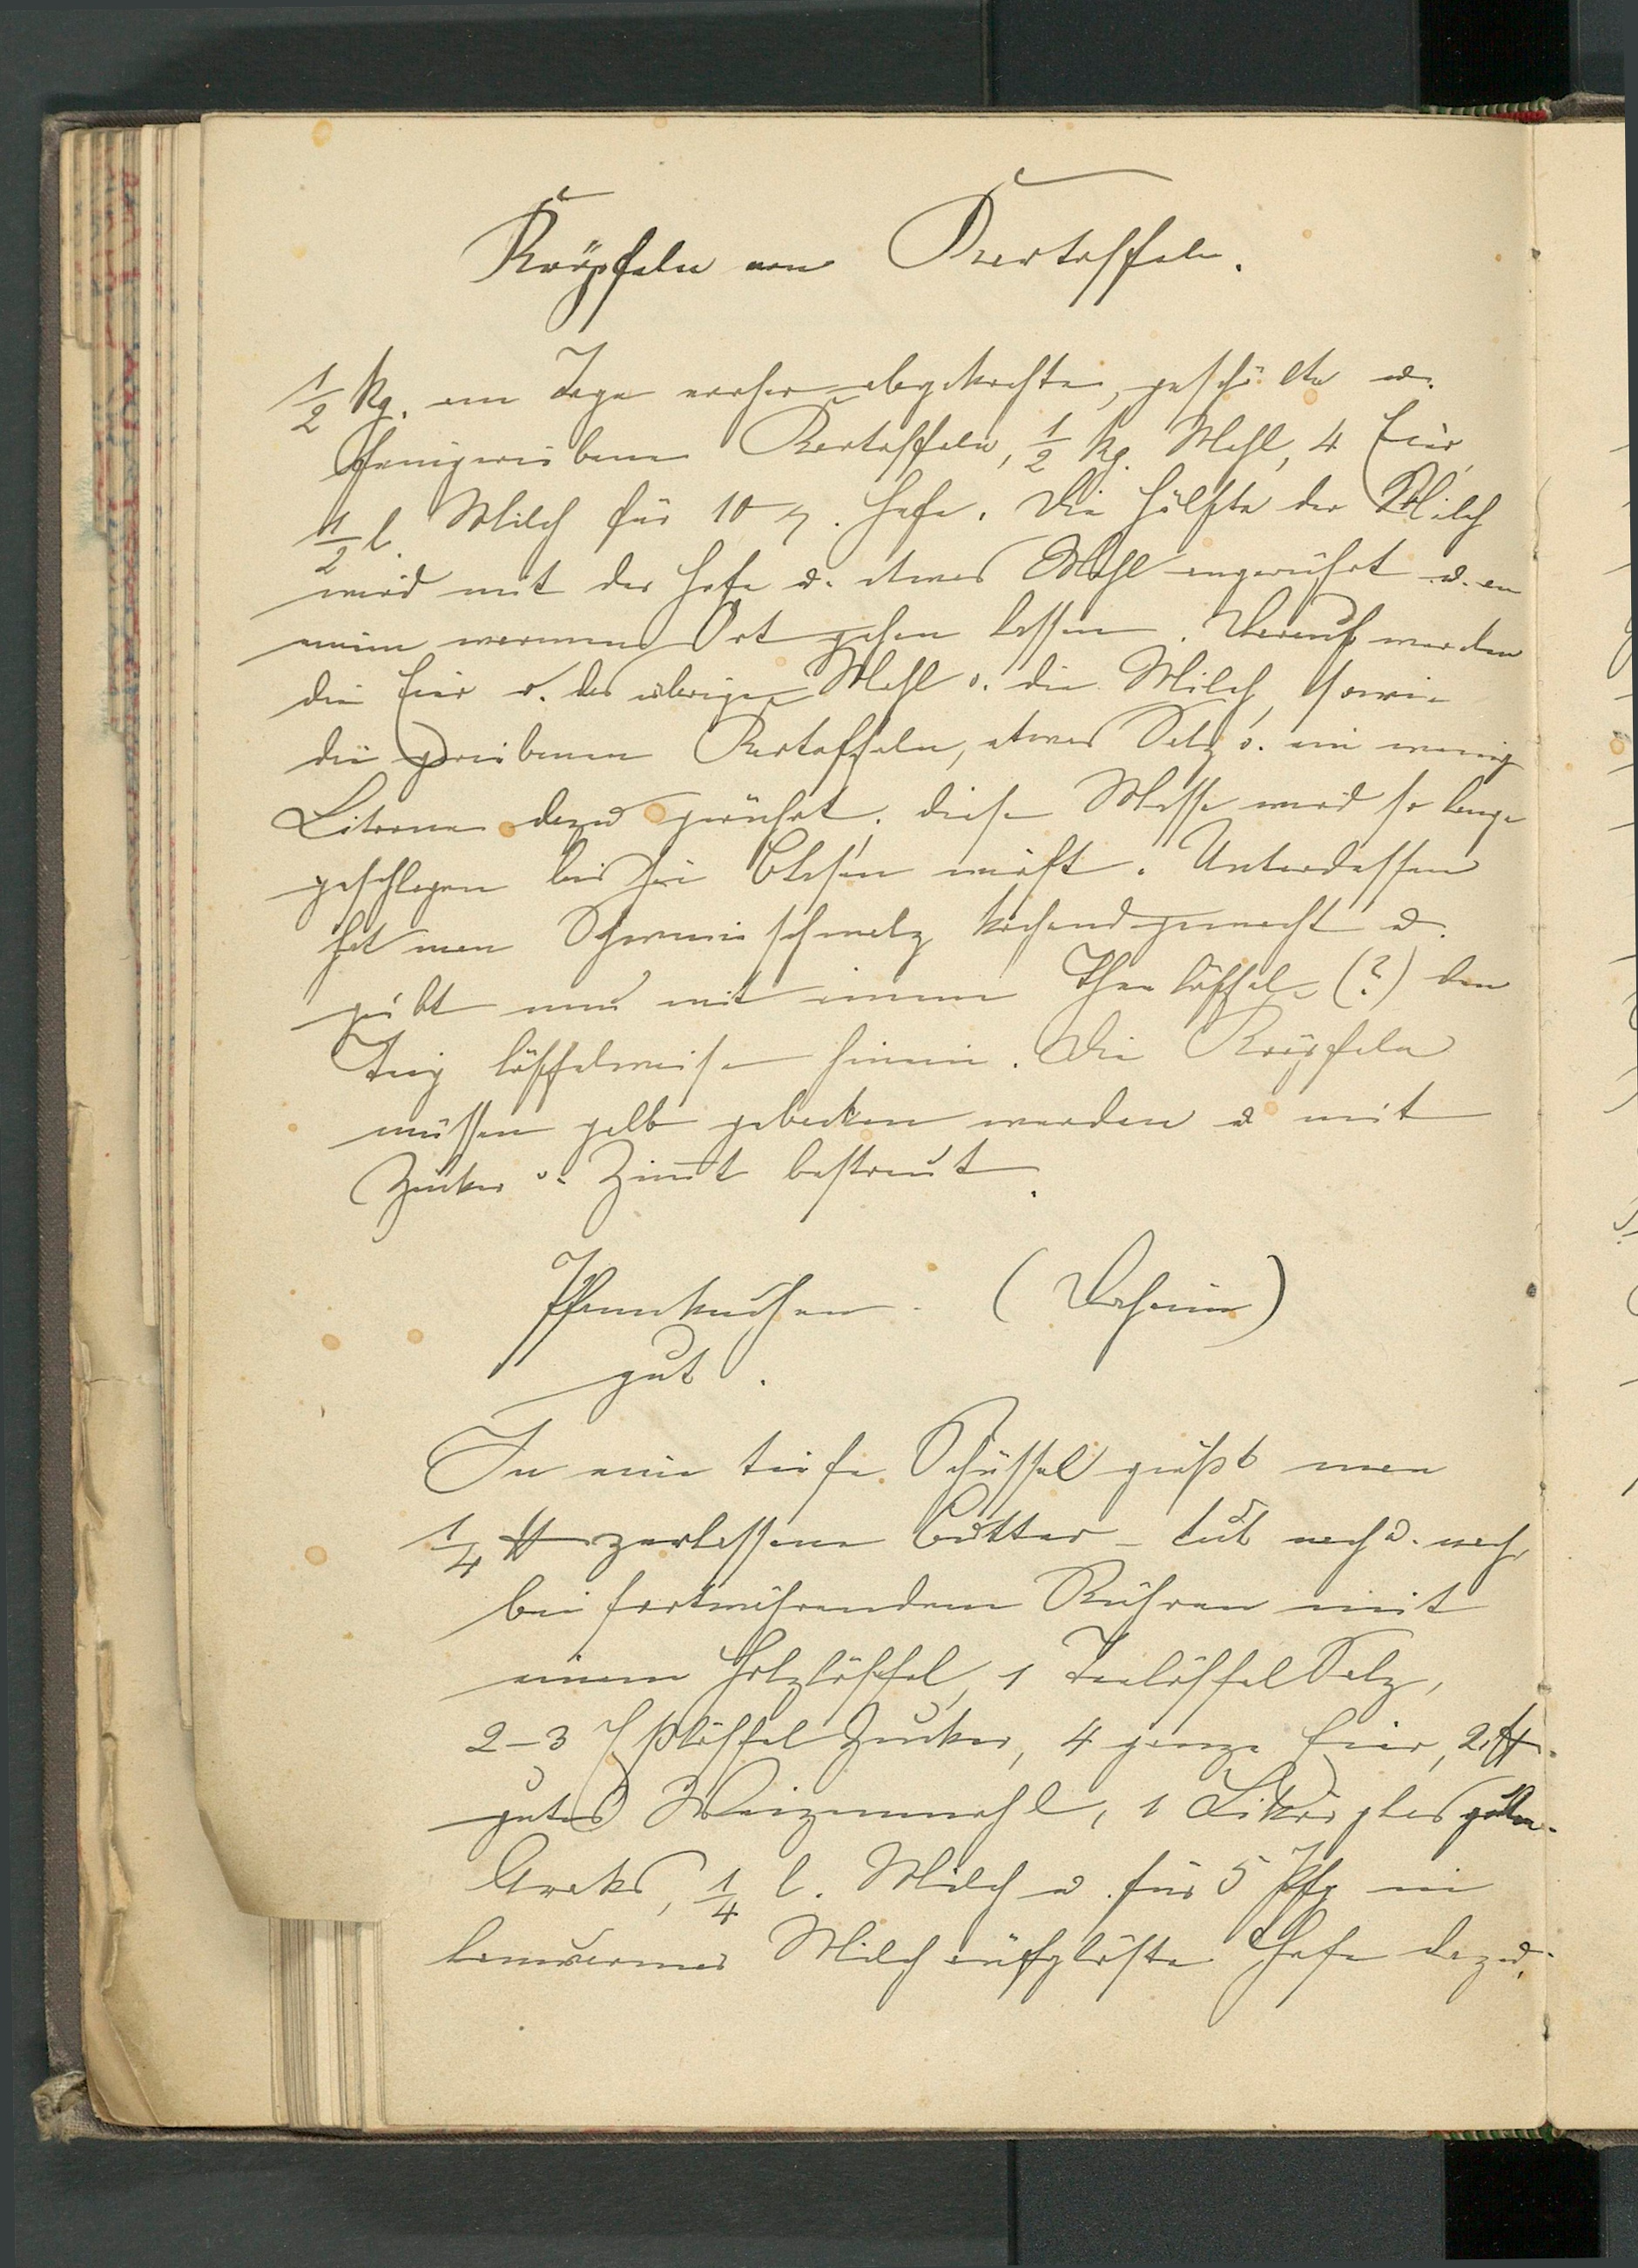 Kröpfeln von Kartoffeln.
1/2 kg. am Tage vorher abgekochte, geschälte u.
feingeriebene Kartoffeln, 1/2 kg. Mehl, 4 Eier,
1/2 l. Milch für 10 ₰. Hefe. Die Hälfte der Milch
wird mit der Hefe u. etwas Mehl angerührt u. an
einem warmen Ort gehen lassen. Darauf werden
die Eier u. das übrige Mehl u. die Milch, sowie
die geriebenen Kartoffeln, etwas Salz u. ein wenig
Zitrone dazu gerührt. diese Masse wird so lange
geschlagen bis sie Blasen wirft. Unterdessen
hat man Schweineschmalz kochend gemacht u.
gibt nun mit einem Theelöffel (?) den
Teig löffelweise hinein. Die Kröpfeln
müssen gelb gebacken werden u mit
Zucker u. Zimt bestreut.
Pfannkuchen. (Daheim)
gut.
In eine tiefe Schüssel gießt man
1/4 ℔ zerlassene Butter – tut nach u. nach,
bei fortwährendem Rühren mit
einem Holzlöffel, 1 Teelöffel Salz,
2-3 Eßlöffel Zucker, 4 ganze Eier, 2 ℔.
gutes Weizenmehl, 1 Likörglas guten
Araks, 1/4 l. Milch u. für 5 Pfg in
lauwarmer Milch aufgelöste Hefe dazu.